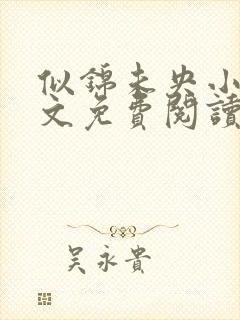 似錦未央小
文免費閱讀
吴永貴